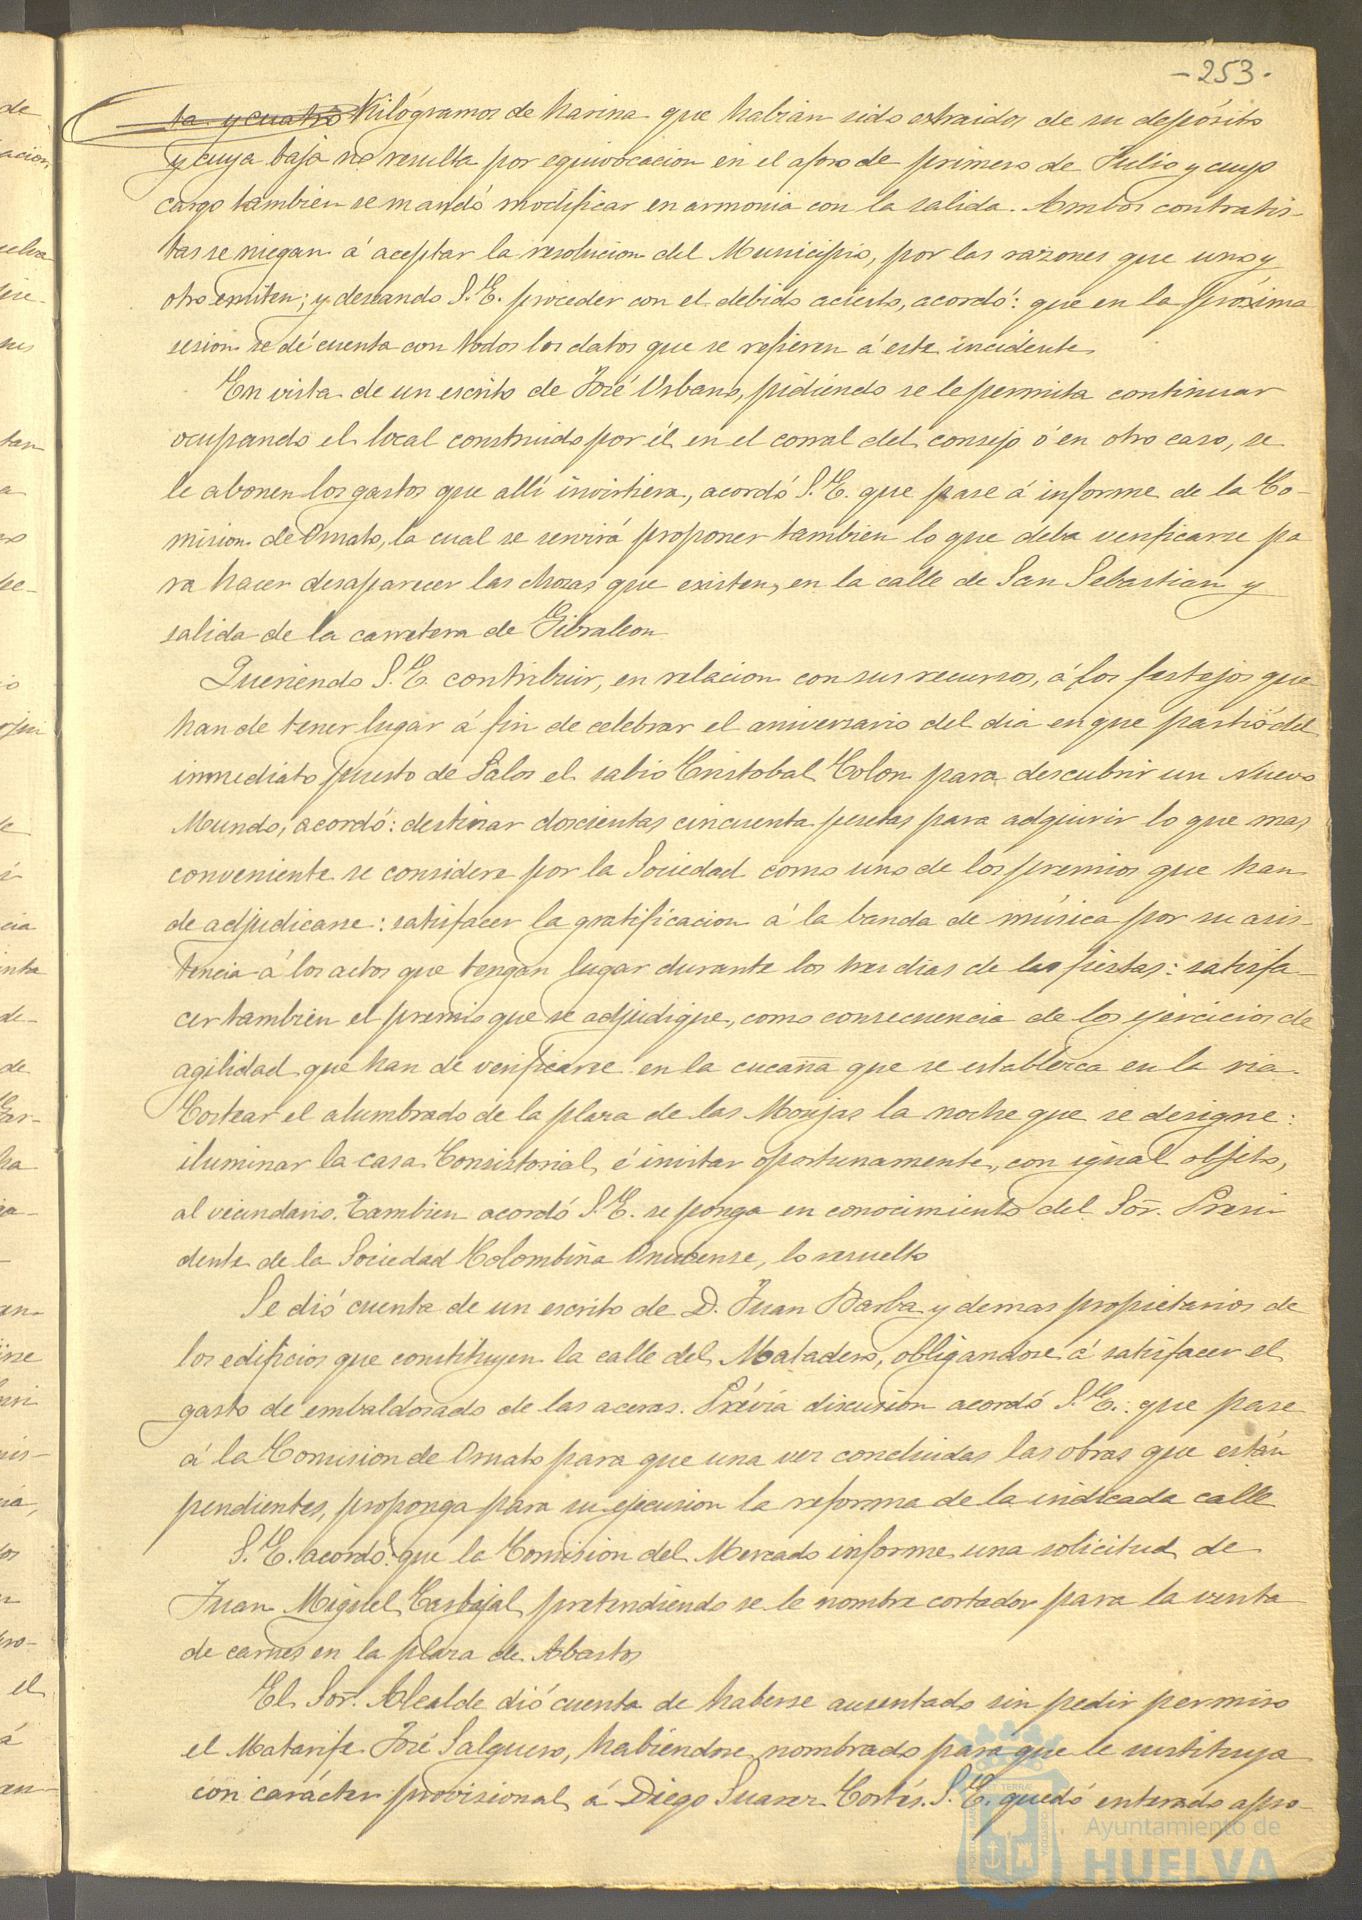 -253.
ta y cuatro Kilógramos de harina que habian sido extraidos de su depósito
y cuya baja no resulta por equivocacion en el aforo de primero de Julio y cuyo
cargo tambien se mandó modificar en armonia con la salida. Ambos contratis-
tas se niegan á aceptar la resolucion del Municipio, por las razones que uno y
otro emiten; y deseando S.E. proceder con el debido acierto, acordó: que en la próxima
sesion se dé cuenta con todos los datos que se refieren á este incidente
En vista de un escrito de José Urbano, pidiendo se le permita continuar
ocupando el local construido por él en el corral del consejo ó en otro caso, se
le abonen los gastos que allí invirtiera, acordó S.E. que pase á informe de la Co-
mision de Ornato, la cual se servirá proponer tambien lo que deba verificarse pa
ra hacer desaparecer las chozas que existen, en la calle de San Sebastian y
salida de la carretera de Gibraleon
Queriendo S.E. contribuir, en relacion con sus recursos, á los festejos que
han de tener lugar á fin de celebrar el aniversario del dia en que partió del
inmediato puerto de Palos el sabio Cristobal Colon para descubrir un Nuevo
Mundo, acordó: destinar doscientas cincuenta pesetas para adquirir lo que mas
conveniente se considere por la Sociedad como uno de los premios que han
de adjudicarse: satisfacer la gratificacion á la banda de música por su asis-
tencia á los actos que tengan lugar durante los tres dias de las fiestas: satisfa-
cer tambien el premio que se adjudique, como consecuencia de los ejercicios de
agilidad que han de verificarse en la cucaña que se establezca en la ria.
Costear el alumbrado de la plaza de las Monjas la noche que se designe:
iluminar la casa Consistorial, é invitar oportunamente, con igual objeto,
al vecindario. Tambien acordó S.E. se ponga en conocimiento del Sor. Presi
dente de la Sociedad Colombina Onubense, lo resuelto
Se dió cuenta de un escrito de D. Juan Barba y demas propietarios de
los edificios que constituyen la calle del Matadero, obligandose á satisfacer el
gasto de embaldosado de las aceras. Prévia discusion acordó S.E.: que pase
á la Comision de Ornato para que una vez concluidas las obras que están
pendientes, proponga para su ejecusion la reforma de la indicada calle
S.E. acordó: que la Comision del Mercado informe una solicitud de
Juan Miguel Carbajal, pretendiendo se le nombre cortador para la venta
de carnes en la plaza de Abastos
El Sor. Alcalde dió cuenta de haberse ausentado sin pedir permiso
el Matarife José Salguero, habiendose nombrado para que le sustituya
con carácter provisional á Diego Suarez Cortés. S.E. quedó enterado apro-
Ayuntamiento de
HUELVA